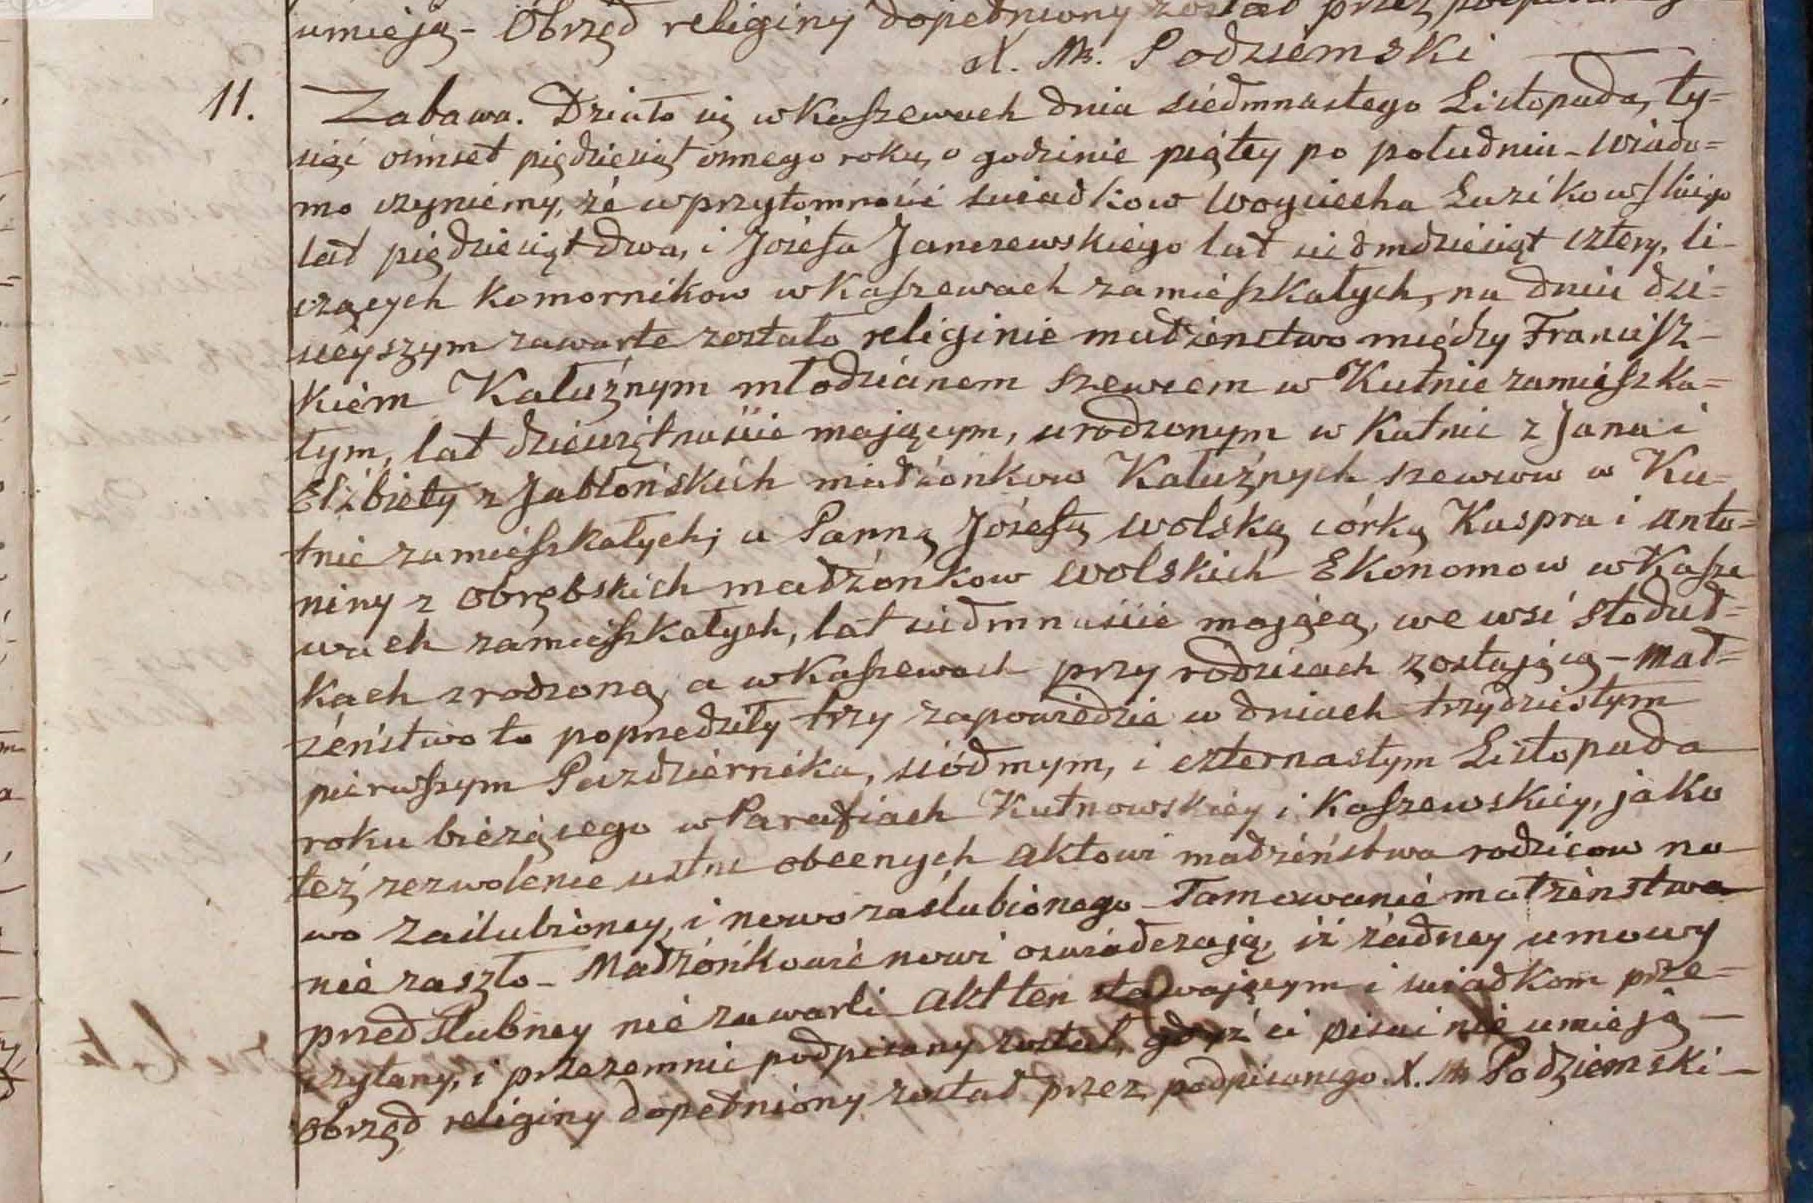 umieją - Obrzęd religijny dopełniony został przez
X. M. Podziemski
11.
Zabawa. Działo się w Kaszewach dnia siedmnastego Listopada, ty=
siąć ośmset piędziesiąt osmego roku, o godzinie piątey po południu - Wiado=
mo czyniemy, że w przytomności swiadkow Woyciecha Łuzikowskiego
lat piędziesiąt dwa, i Jozefa Janczewskiego lat siedmdziesiąt cztery, li-
czących komornikow w Kaszewach zamieszkałych, na dniu dzi=
sieyszym zawarte zostało religinie małżeństwo między Francisz-
kiem Kałużnym młodzianem szewcem w Kutnie zamieszka=
łym, lat dziewiętnaście mającym, urodzonym w Kutnie z Jana i
Elżbiety z Jabłońskich małżonkow Kałużnych szewcow w Ku=
tnie zamieszkałych; a Panną Jozefą Wolską córką Kaspra i Anto=
niny z Obrębskich madżonkow Wolskich Ekonomow w Kasze
wach zamieszkałych, lat siedmnaście mającą, we wsi Słoduł=
kach zrodzoną, a w Kaszewach przy rodzicach zostającą - Mał=
żeństwo to poprzedziły trzy zapowiedzie w dniach trzydziestym
pierwszym Pazdziernika, siódmym, i czternastym Listopada
roku bieżącego w Parafiach Kutnowskiey i Kaszewskiey, jako
też zezwolenie ustne obecnych aktowi madżeństwa rodzicow no
wo zaślubioney, i nowozaślubionego - Tamowanie małżeństwa
nie zaszło - Madżónkowie nowi oswiadczają, iż żadney umowy
przedślubney nie zawarli Akt ten stawającym i swiadkom prze=
czytany, i przezemnie podpisany został, gdyż ci pisać nie umieją -
Obrzęd religiny dopełniony został przez podpisanego. X. M Podziemski -